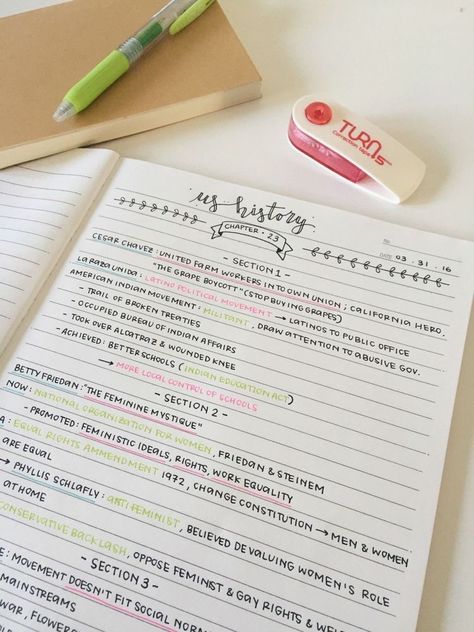 TURNS
Correction tape
us·history
CHAPTER·23
NO.
DATE 03 . 31 . 16
- SECTION 1 -
CESAR CHAVEZ : UNITED FARM WORKERS INTO OWN UNION ; CALIFORNIA HERO.
"THE GRAPE BOYCOTT" (STOP BUYING GRAPES)
LA RAZA UNIDA : LATINO POLITICAL MOVEMENT → LATINOS TO PUBLIC OFFICE
AMERICAN INDIAN MOVEMENT : MILITANT , DRAW ATTENTION TO ABUSIVE GOV.
- TRAIL OF BROKEN TREATIES
- OCCUPIED BUREAU OF INDIAN AFFAIRS
- TOOK OVER ALCATRAZ & WOUNDED KNEE
- ACHIEVED : BETTER SCHOOLS ( INDIAN EDUCATION ACT)
→ MORE LOCAL CONTROL OF SCHOOLS
- SECTION 2 -
BETTY FRIEDAN : "THE FEMININE MYSTIQUE"
NOW : NATIONAL ORGANIZATION FOR WOMEN , FRIEDAN & STEINEM
- PROMOTED : FEMINISTIC IDEALS, RIGHTS, WORK EQUALITY
A : EQUAL RIGHTS AMMENDMENT 1972 , CHANGE CONSTITUTION → MEN & WOMEN
ARE EQUAL
→ PHYLLIS SCHLAFLY : ANTI FEMINIST , BELIEVED DEVALUING WOMEN'S ROLE
AT HOME
CONSERVATIVE BACKLASH , OPPOSE FEMINIST & GAY RIGHTS & WEL
- SECTION 3 -
E : MOVEMENT DOESN'T FIT SOCIAL NORM
MAINSTREAMS
WAR , FLOWERS